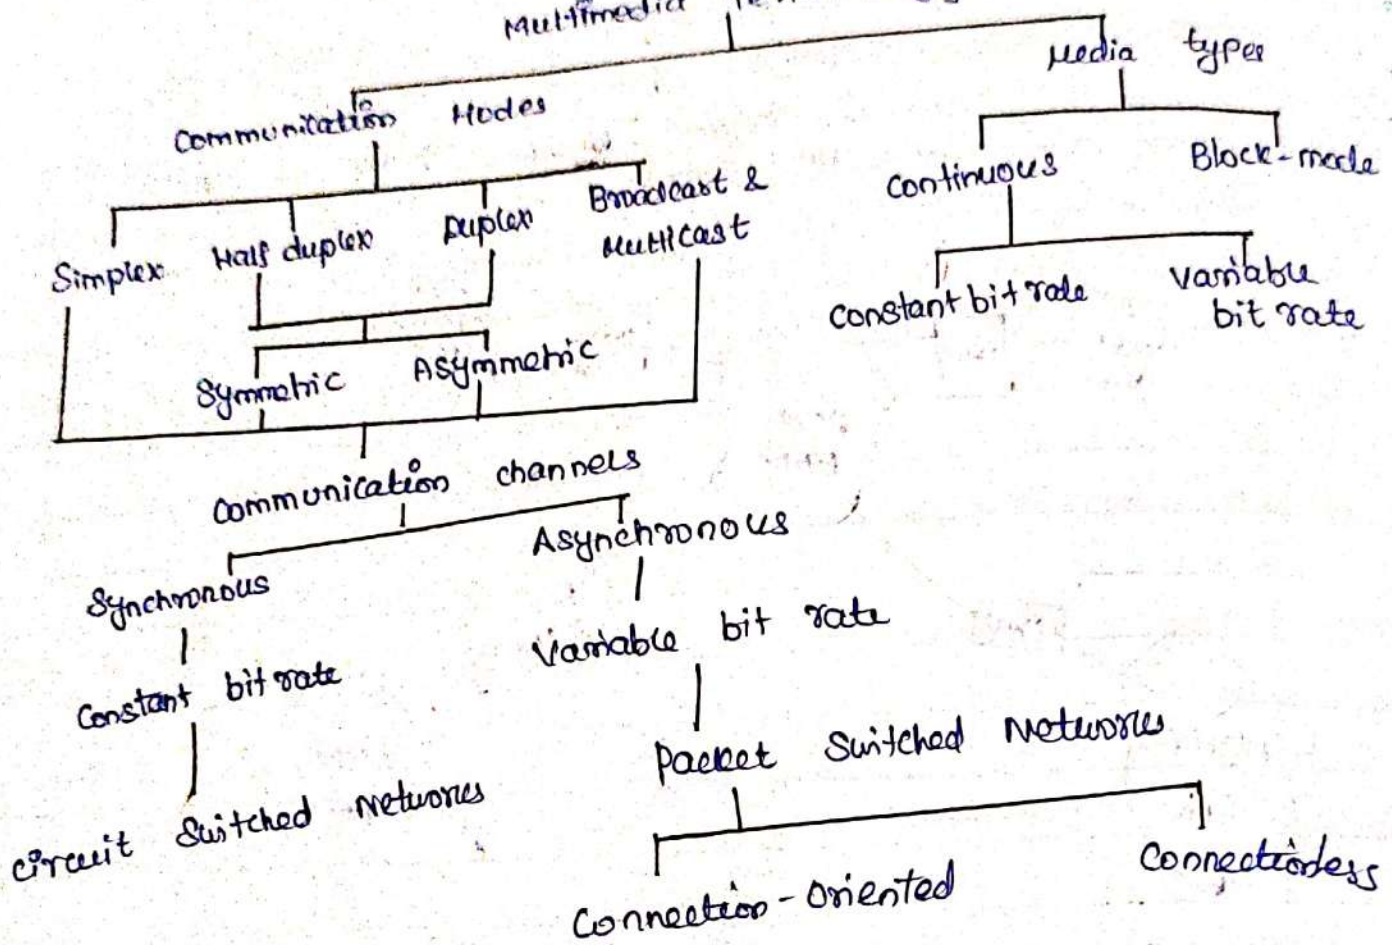 Multimedia
Media types
Communication Modes
Continuous
Block-mode
Simplex
Half duplex
Duplex
Broadcast &
Multicast
Constant bit rate
Variable
bit rate
Symmetric
Asymmetric
Communication channels
Synchronous
Asynchronous
Constant bit rate
Variable bit rate
Circuit Switched Networks
Packet Switched Networks
Connection-Oriented
Connectionless